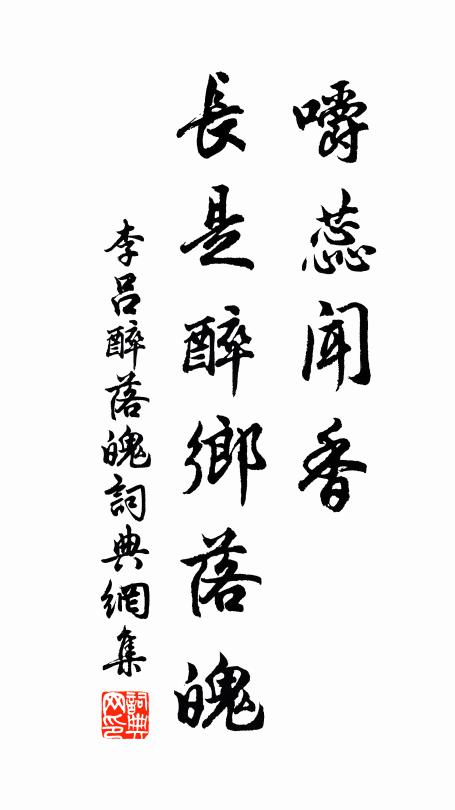 嚼蕊聞香
長是醉鄉落魄
李呂醉落魄詞典網集
詞典网印